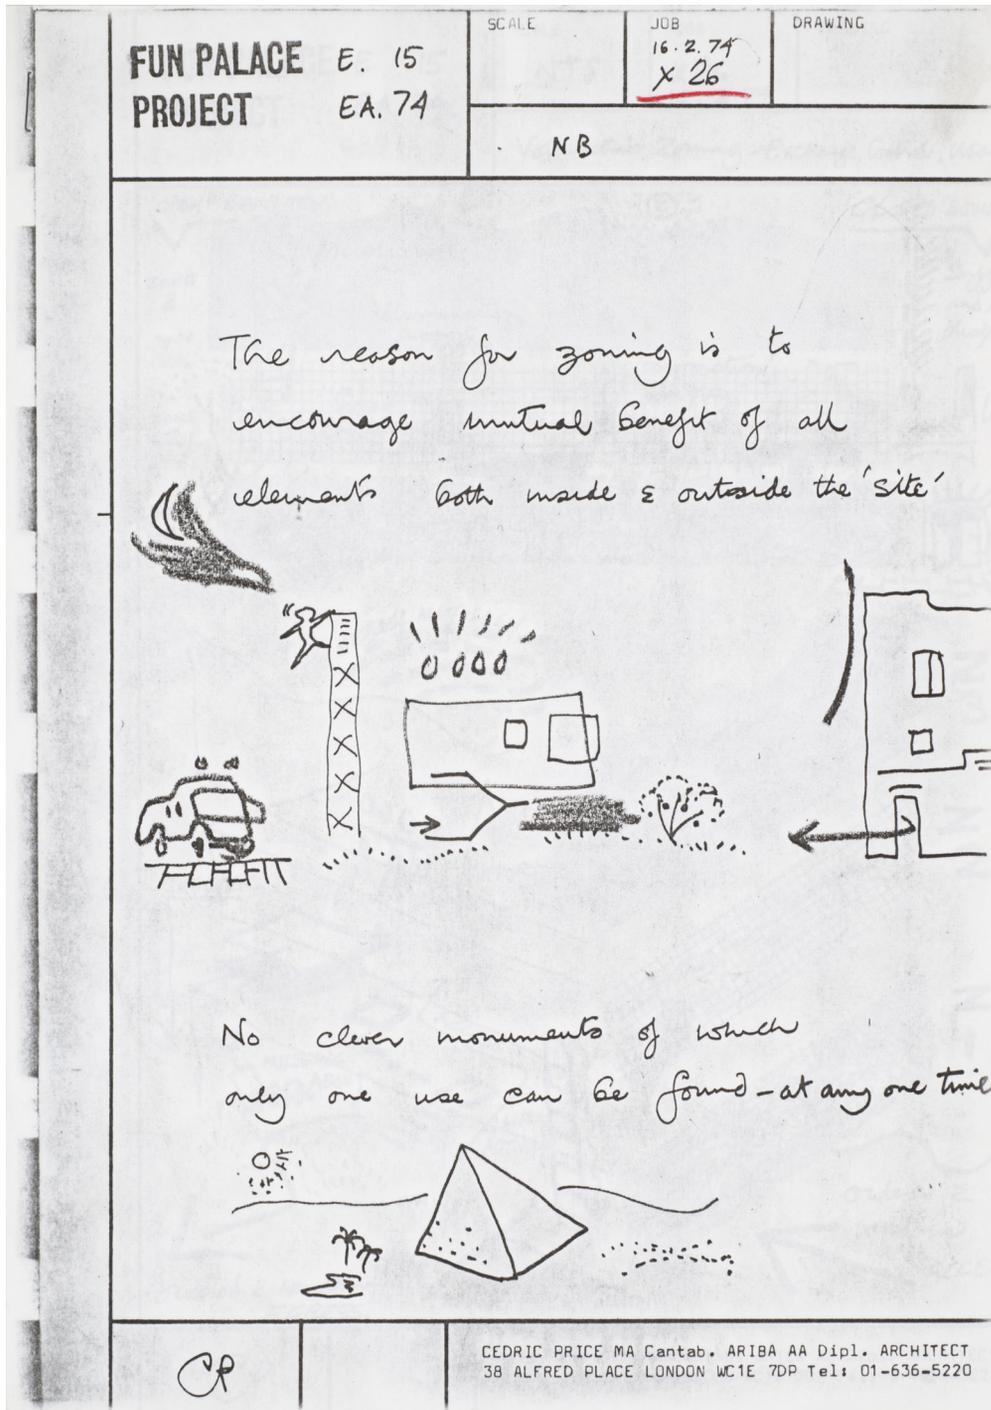 FUN PALACE E. 15
PROJECT EA. 74
SCALE
JOB
DRAWING
16. 2. 74
X 26
NB
The reason for zoning is to
encourage mutual benefit of all
elements both inside & outside the 'site'
No clever monuments of which
only one use can be found - at any one time
CP
CEDRIC PRICE MA Cantab. ARIBA AA Dipl. ARCHITECT
38 ALFRED PLACE LONDON WC1E 7DP Tel: 01-636-5220